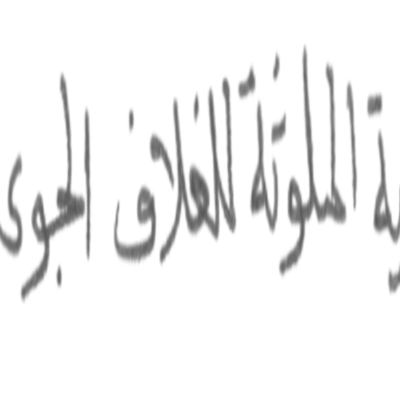 ية الملوثة للغلاف الجوى